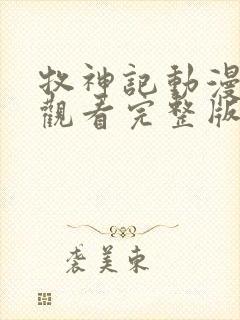 牧神記動漫
觀看完整版
袭美東